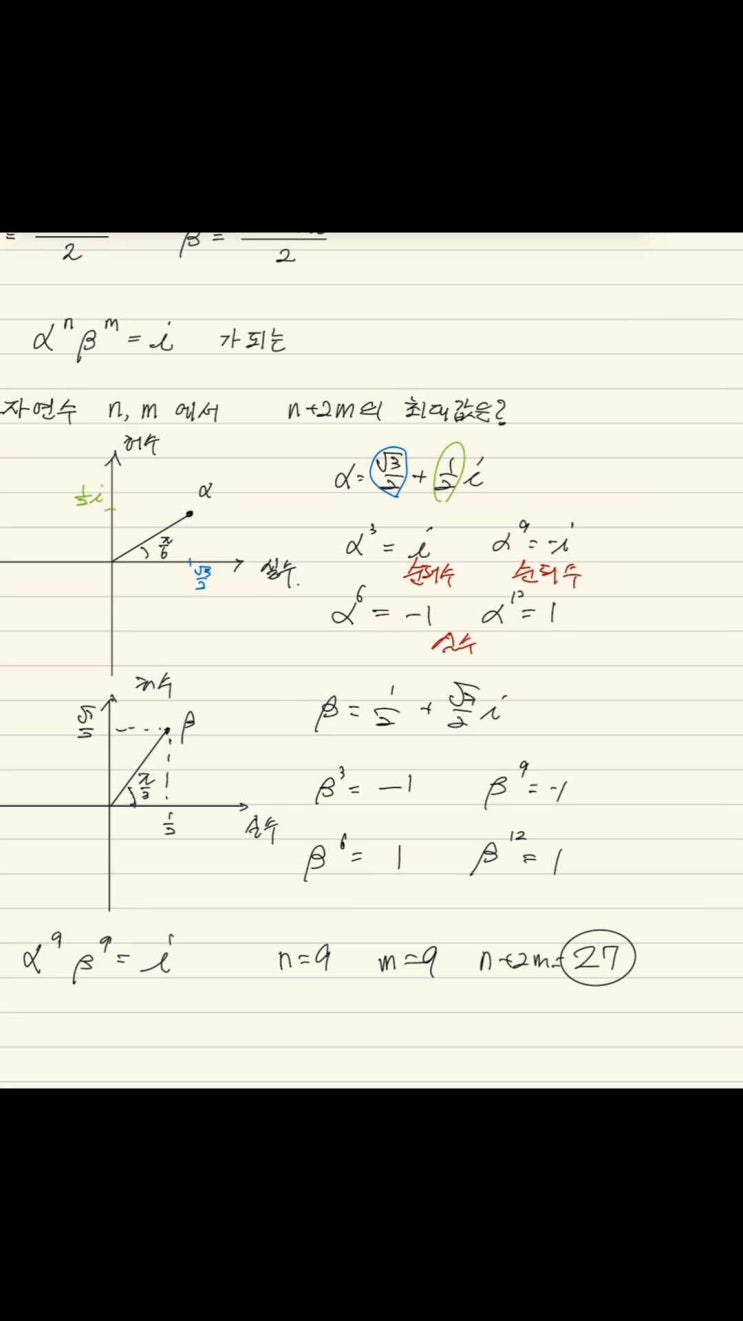 = 2 β = 2
αⁿ βᵐ = i 가 되는
자연수 n, m 에서 n+2m의 최대값은?
허수
½i α π/6 √3/2 실수.
α = √3/2 + 1/2 i
α³ = i α⁹ = -i
순허수 순허수
α⁶ = -1 α¹² = 1
실수
허수
β π/3 실수
β = 1/2 + √3/2 i
β³ = -1 β⁹ = -1
β⁶ = 1 β¹² = 1
α⁹ β⁹ = i n=9 m=9 n+2m= 27